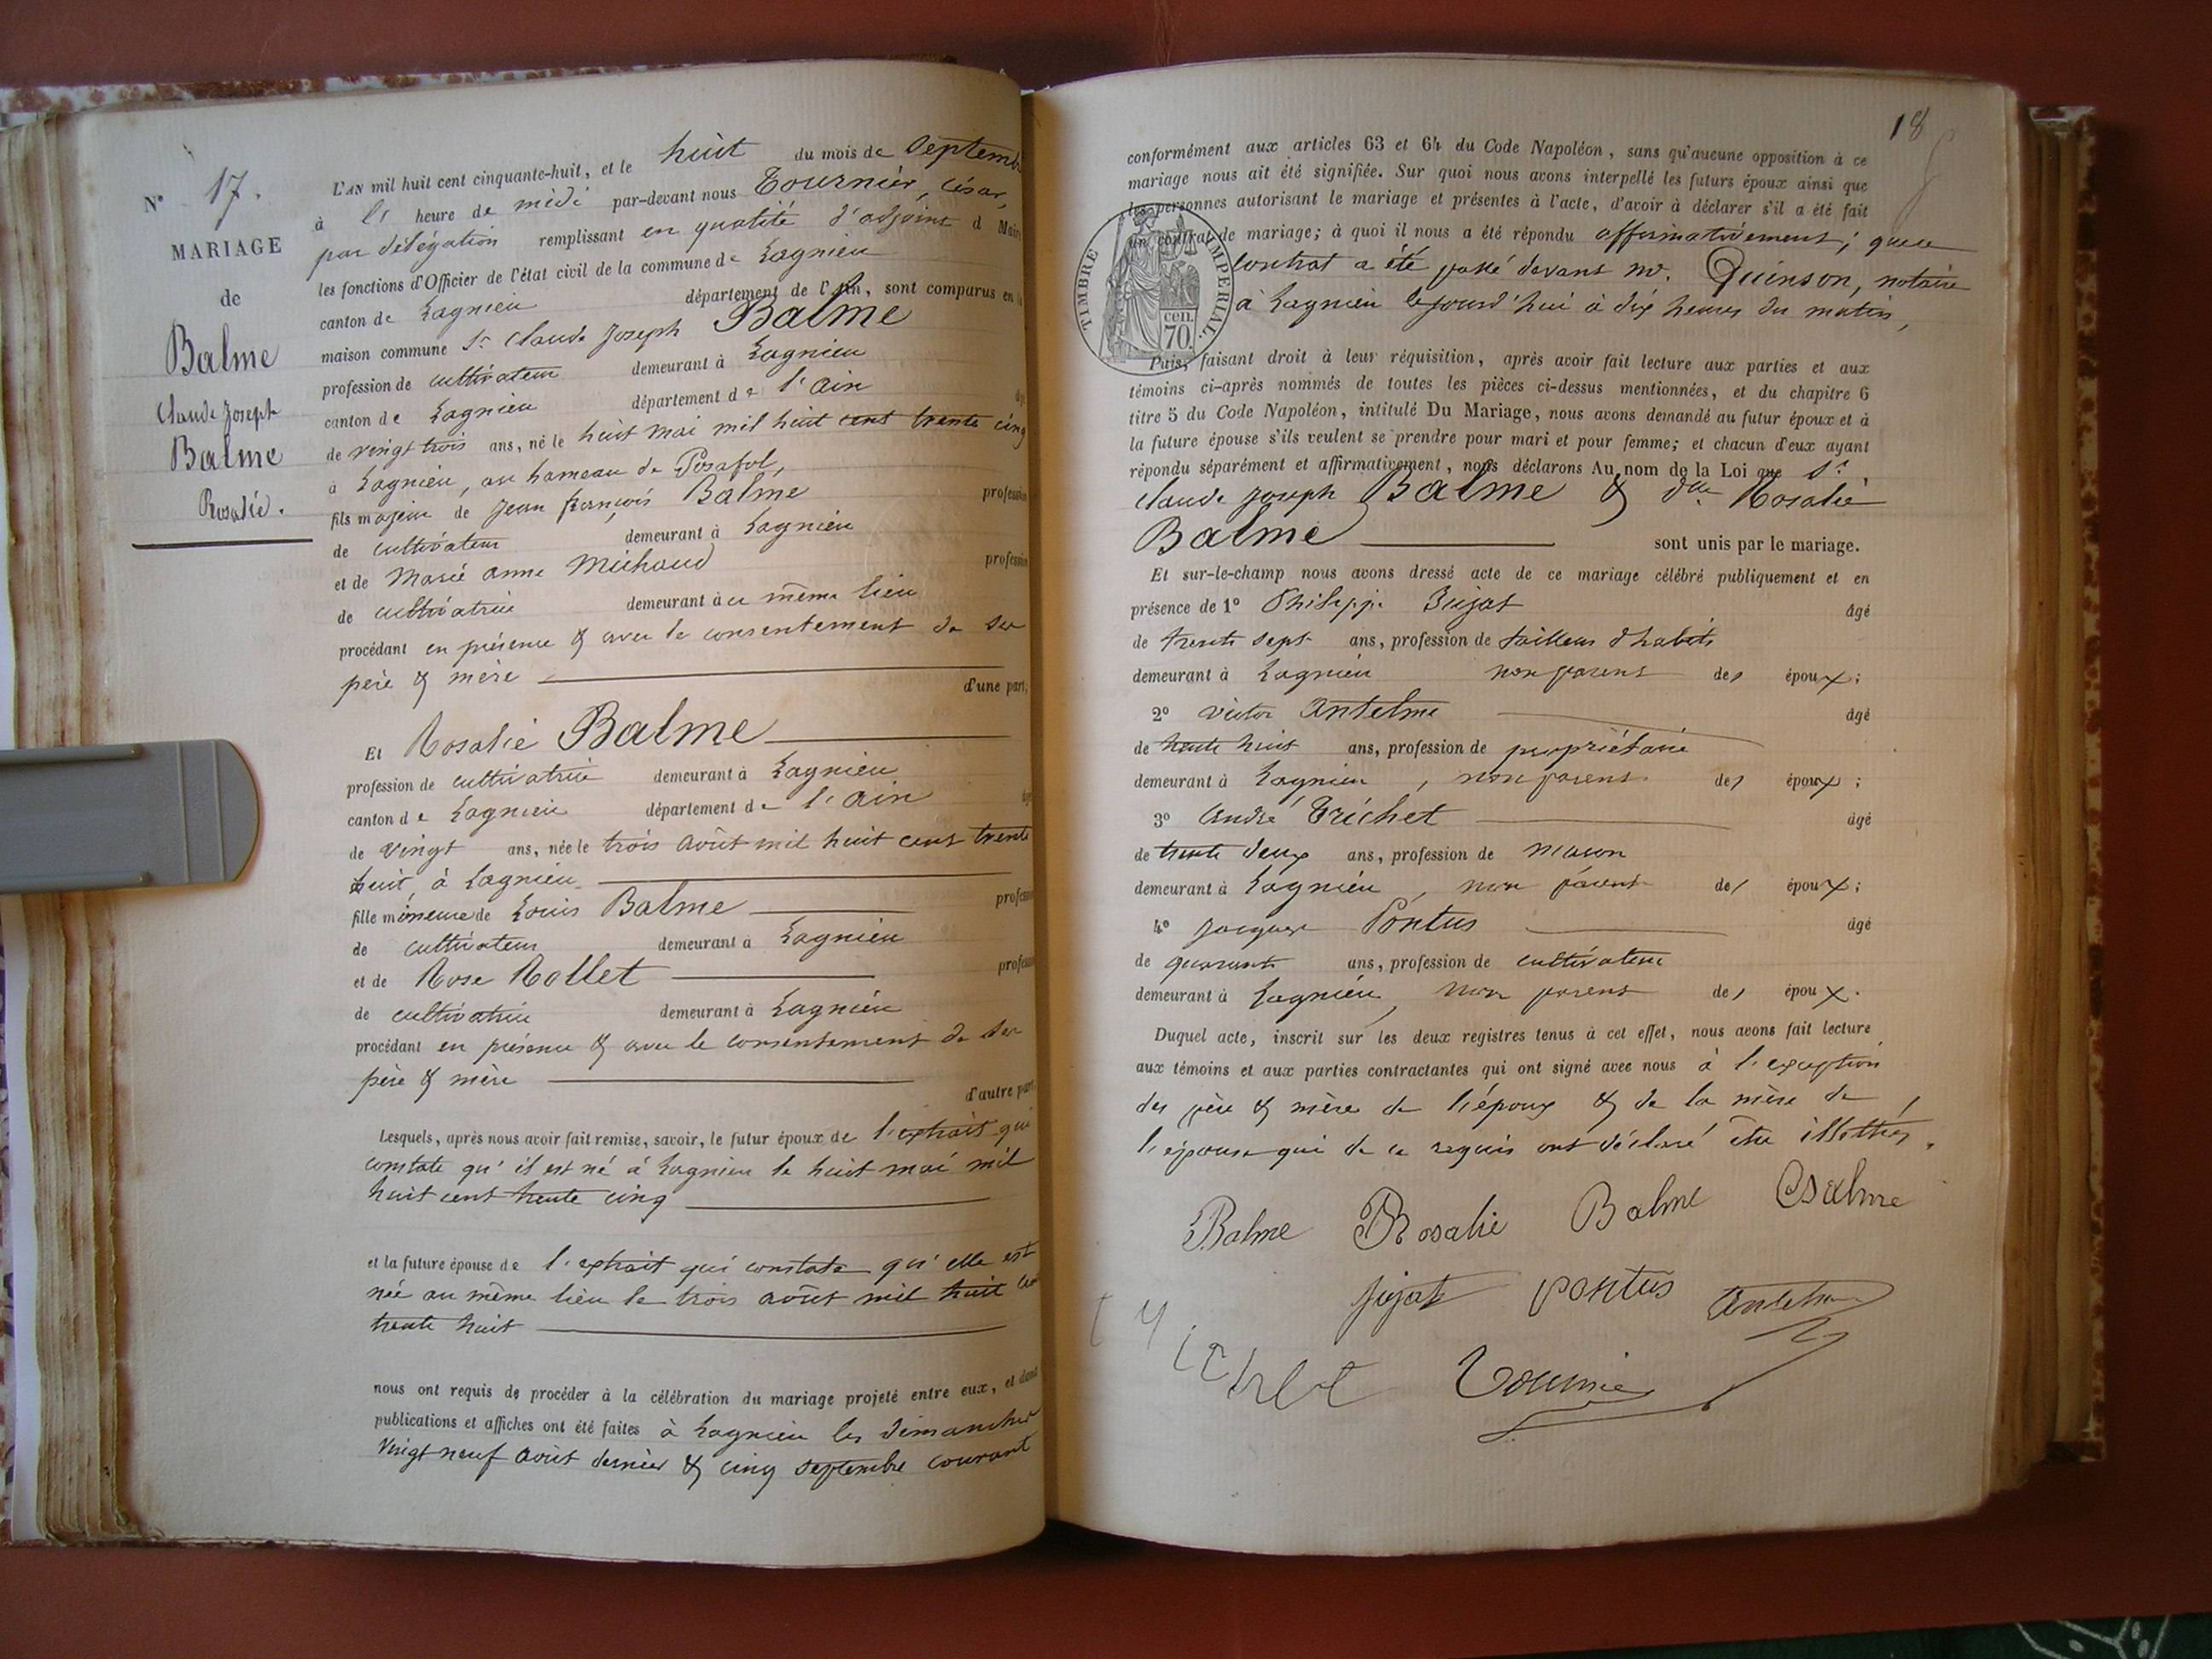 N° 17.
MARIAGE
de
Balme
Claude Joseph
Balme
Rosalie.
L'AN mil huit cent cinquante-huit, et le huit du mois de Septemb
à l' heure de midi par-devant nous Tournier, César,
par délégation remplissant en qualité d'adjoint d Mair
les fonctions d'Officier de l'état civil de la commune de Lagnieu
canton de Lagnieu département de l'Ain, sont comparus en la
maison commune Sr Claude Joseph Balme
profession de cultivateur demeurant à Lagnieu
canton de Lagnieu département de l'Ain âgé
de vingt trois ans, né le huit mai mil huit cent trente cinq
à Lagnieu, au hameau de Posafol,
fils majeur de Jean françois Balme profession
de cultivateur demeurant à Lagnieu
et de Marie anne Michaud profession
de cultivatrice demeurant à ce même lieu
procédant en présence & avec le consentement de ses
père & mère d'une part;
Et Rosalie Balme
profession de cultivatrice demeurant à Lagnieu
canton de Lagnieu département de l'Ain âgé
de vingt ans, née le trois août mil huit cent trente
huit, à Lagnieu
fille mineure de Louis Balme profess
de cultivateur demeurant à Lagnieu
et de Rose Rollet profess
de cultivatrice demeurant à Lagnieu
procédant en présence & avec le consentement de ses
père & mère d'autre part.
Lesquels, après nous avoir fait remise, savoir, le futur époux de l'extrait qui
constate qu'il est né à Lagnieu le huit mai mil
huit cent trente cinq
et la future épouse de l'extrait qui constate qu'elle est
née au même lieu le trois août mil huit cent
trente huit
nous ont requis de procéder à la célébration du mariage projeté entre eux, et dont
publications et affiches ont été faites à Lagnieu les dimanches
vingt neuf août dernier & cinq septembre courant
18
conformément aux articles 63 et 64 du Code Napoléon, sans qu'aucune opposition à ce
mariage nous ait été signifiée. Sur quoi nous avons interpellé les futurs époux ainsi que
les personnes autorisant le mariage et présentes à l'acte, d'avoir à déclarer s'il a été fait
un contrat de mariage; à quoi il nous a été répondu affirmativement; que ce
contrat a été passé devant me. Quinson, notaire
à Lagnieu cejourd'hui à dix heures du matin,
TIMBRE IMPERIAL.
cen.
70.
Puis, faisant droit à leur réquisition, après avoir fait lecture aux parties et aux
témoins ci-après nommés de toutes les pièces ci-dessus mentionnées, et du chapitre 6
titre 5 du Code Napoléon, intitulé Du Mariage, nous avons demandé au futur époux et à
la future épouse s'ils veulent se prendre pour mari et pour femme; et chacun d'eux ayant
répondu séparément et affirmativement, nous déclarons Au nom de la Loi que Sr
Claude Joseph Balme & dlle Rosalie
Balme sont unis par le mariage.
Et sur-le-champ nous avons dressé acte de ce mariage célébré publiquement et en
présence de 1° Philippe Jujat âgé
de trente sept ans, profession de tailleur d'habits
demeurant à Lagnieu non parent des époux;
2° victor Antelme âgé
de trente huit ans, profession de propriétaire
demeurant à Lagnieu, non parent des époux;
3° André Trichet âgé
de trente deux ans, profession de maçon
demeurant à Lagnieu, non parent des époux;
4° Jacques Pontus âgé
de quarante ans, profession de cultivateur
demeurant à Lagnieu, non parent des époux.
Duquel acte, inscrit sur les deux registres tenus à cet effet, nous avons fait lecture
aux témoins et aux parties contractantes qui ont signé avec nous à l'exception
des père & mère de l'époux & de la mère de
l'épouse qui de ce requis ont déclaré être illettrés.
Balme Rosalie Balme Balme
Jujat pontus Antelme
trichet Tournier